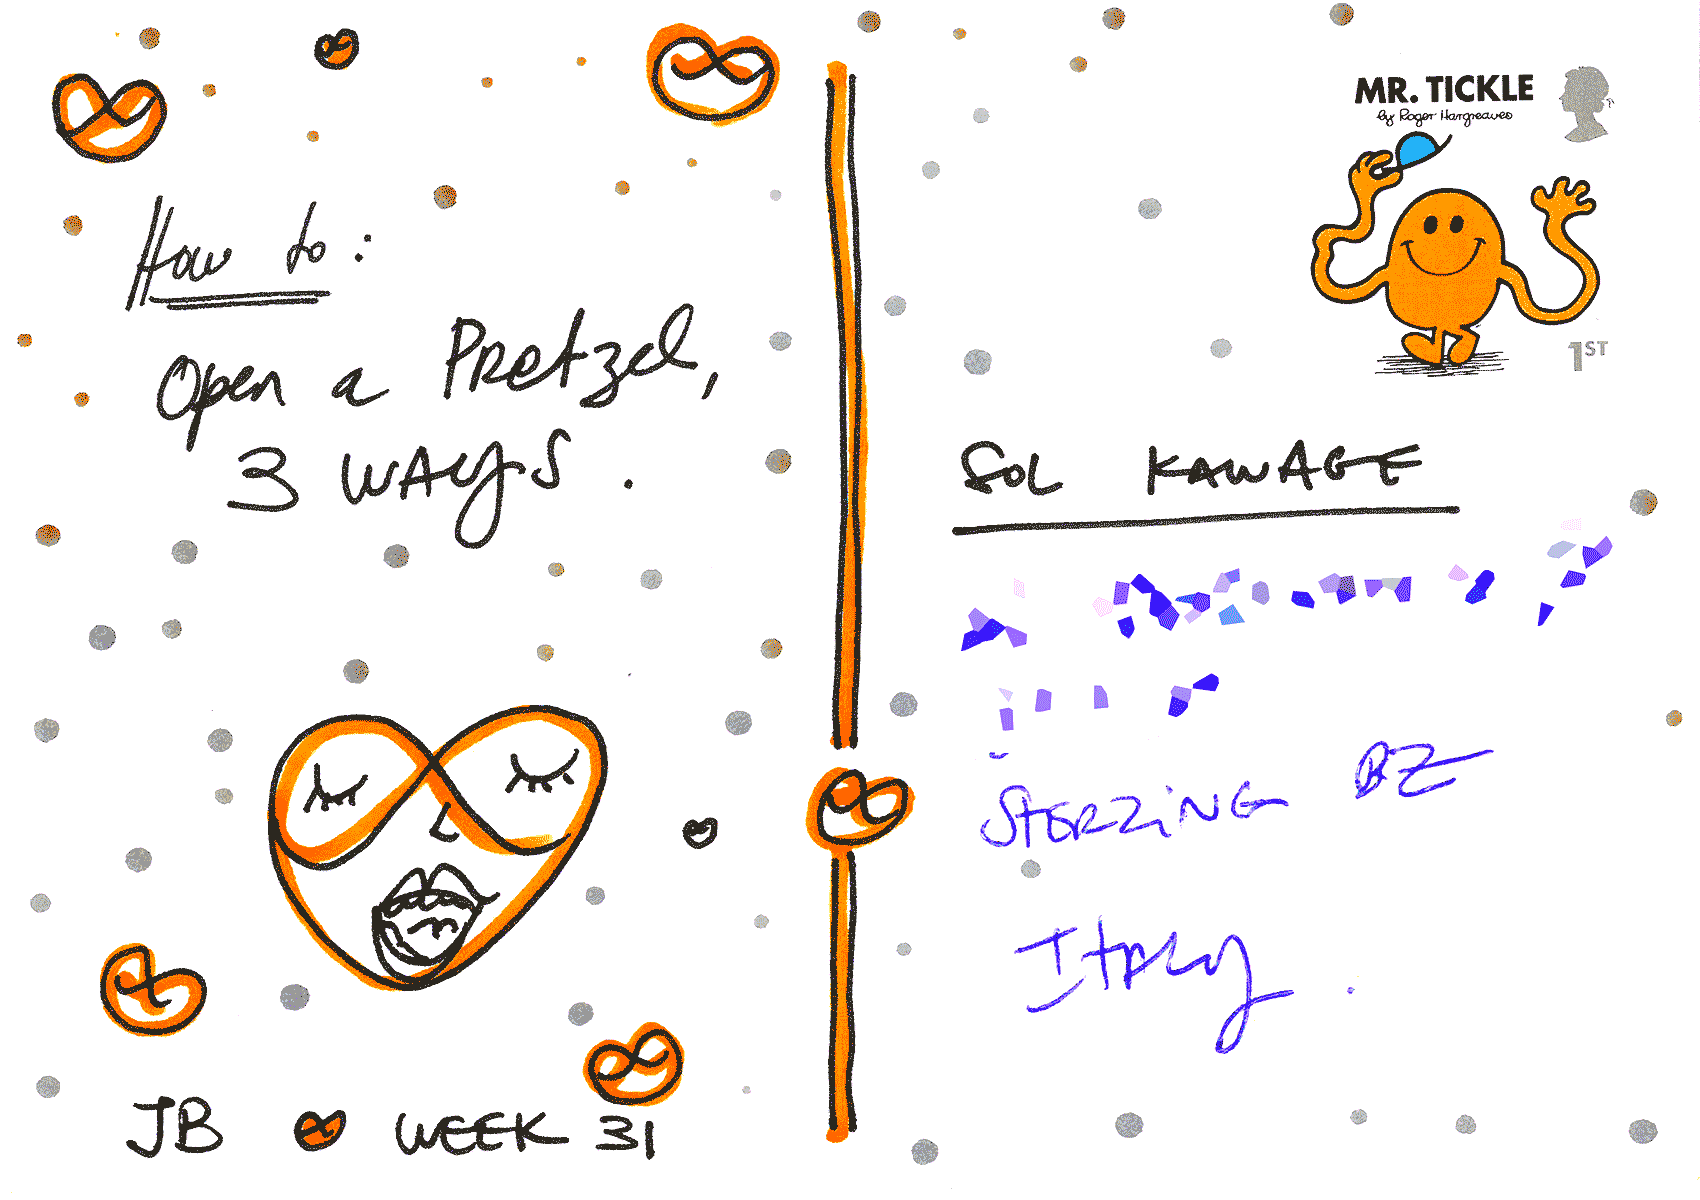 How to:
Open a Pretzel,
3 WAYS.
JB WEEK 31
MR. TICKLE
by Roger Hargreaves
1ST
SOL KAWAGE
STERZING BZ
Italy.